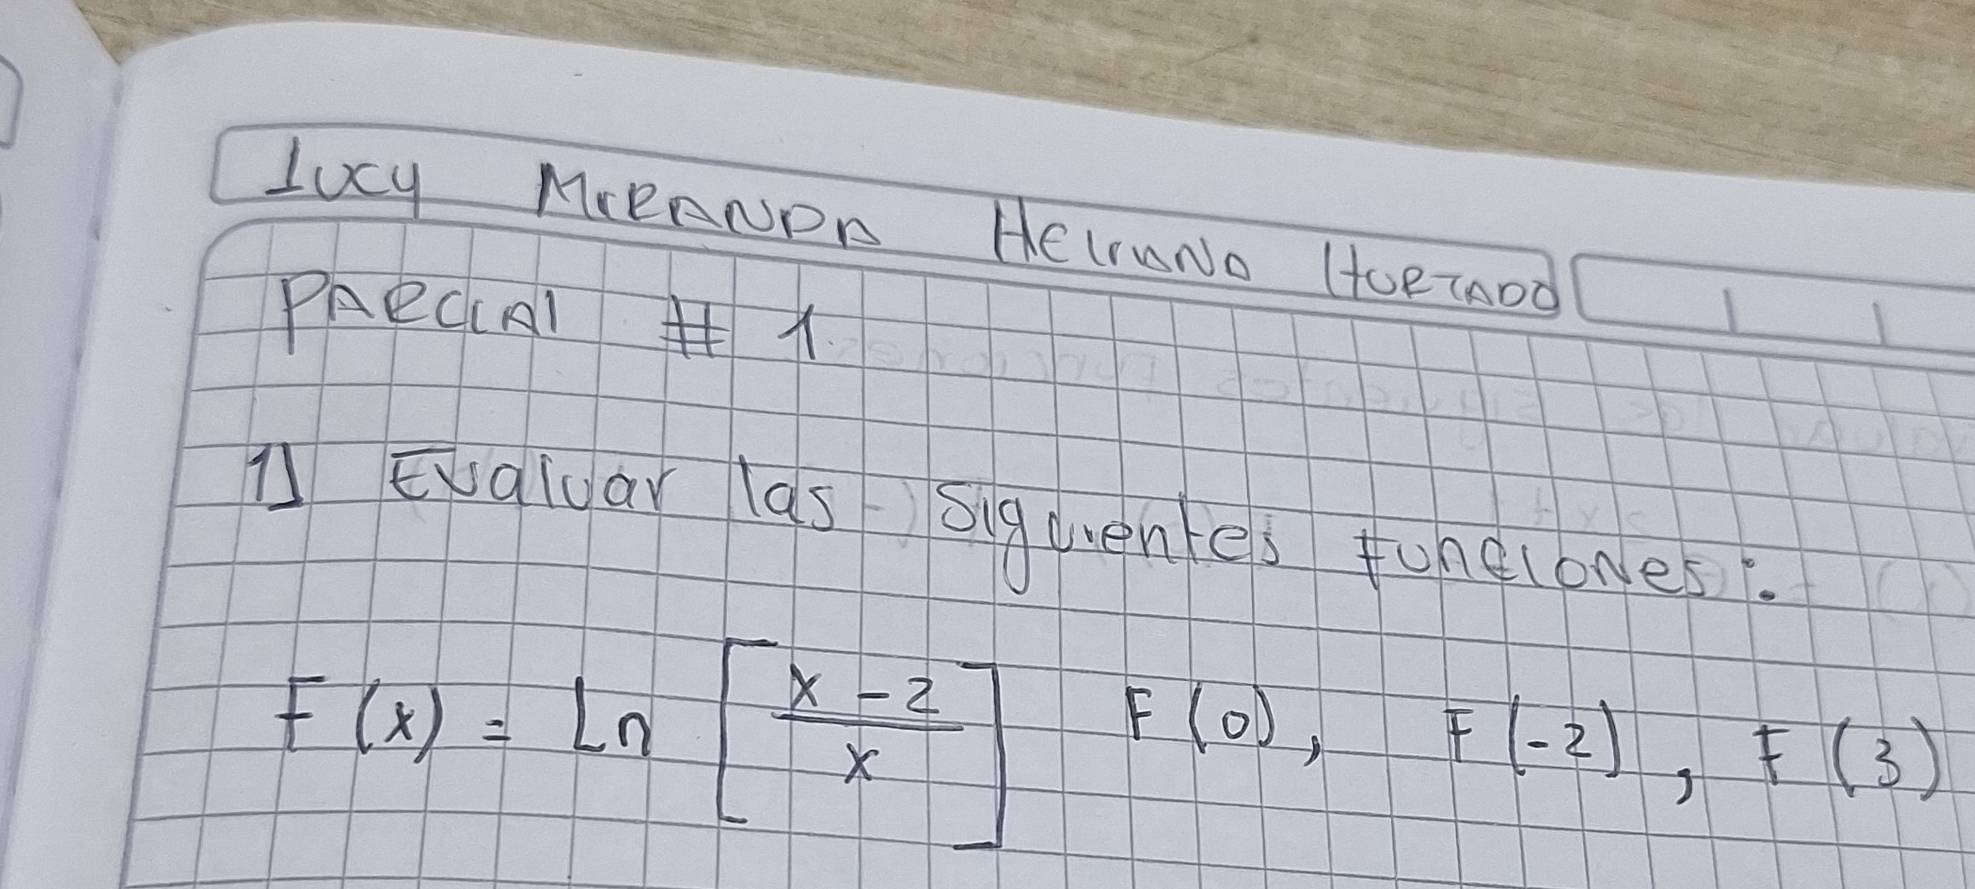 Lucy MiRANDA HeliaNA HURTADO
PARCiAl # 1.
1] Evaluar las Siguientes funciones:
F(x) = Ln [ x - 2 / x ] F(0), F(-2), F(3)